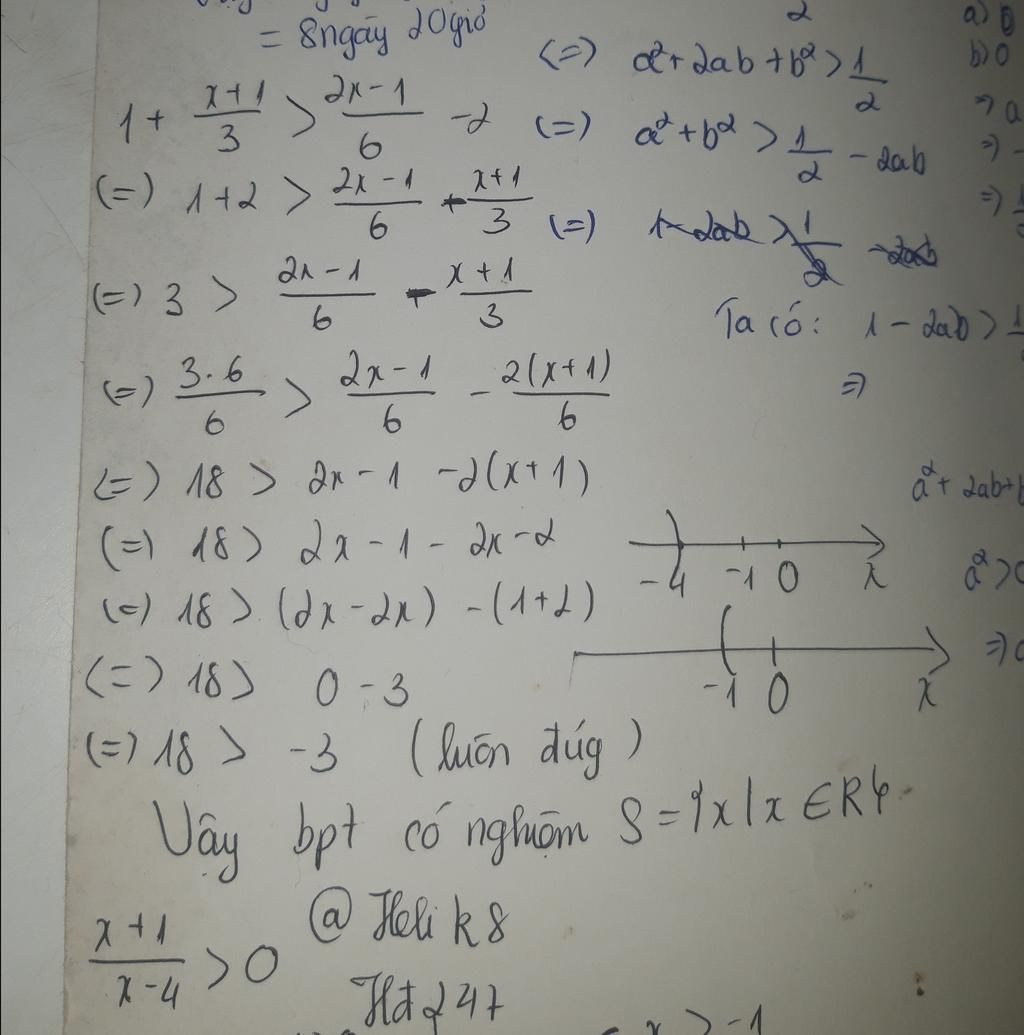 = 8ngãy 20giờ
1 + \frac{x+1}{3} > \frac{2x-1}{6} -2
(=) 1+2 > \frac{2x-1}{6} - \frac{x+1}{3}
(=) 3 > \frac{2x-1}{6} - \frac{x+1}{3}
(=) \frac{3.6}{6} > \frac{2x-1}{6} - \frac{2(x+1)}{6}
(=) 18 > 2x-1 -2(x+1)
(=) 18 > 2x-1-2x-2
(=) 18 > (2x-2x) -(1+2)
(=) 18 > 0-3
(=) 18 > -3 (luôn đúg)
Vậy bpt có nghiệm S = {x | x ∈ R}.
\frac{x+1}{x-4} > 0
@ Heli k8
Hđ247
2
(=) a²+2ab+b² > \frac{1}{2}
(=) a²+b² > \frac{1}{2} - 2ab
(=) 1-2ab > \frac{1}{2} -2ab
Ta có: 1-2ab >
=)
-4 -1 0 x
-1 0 x
a)
b) 0
=) a
=)
=)
a²+2ab+b
a² >
=)
x > -1